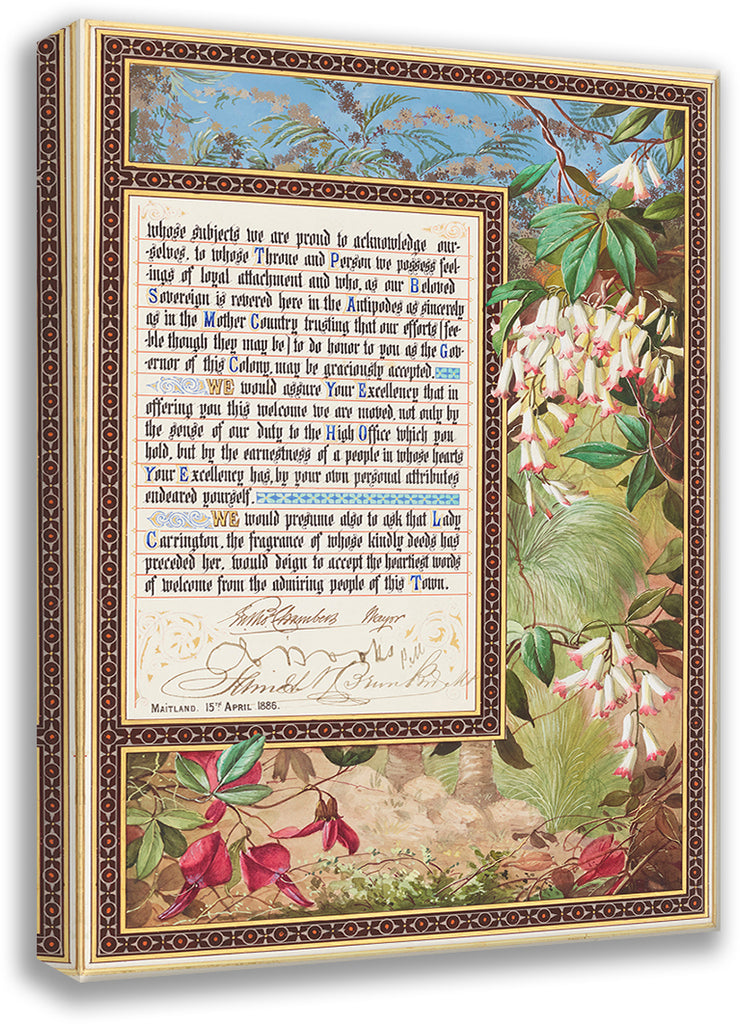 whose subjects we are proud to acknowledge our-
selves, to whose Throne and Person we possess feel-
ings of loyal attachment and who, as our Beloved
Sovereign is revered here in the Antipodes as sincerely
as in the Mother Country trusting that our efforts (fee-
ble though they may be) to do honor to you as the Gov-
ernor of this Colony, may be graciously accepted.
WE would assure Your Excellency that in
offering you this welcome we are moved, not only by
the sense of our duty to the High Office which you
hold, but by the earnestness of a people in whose hearts
Your Excellency has, by your own personal attributes
endeared yourself.
WE would presume also to ask that Lady
Carrington, the fragrance of whose kindly deeds has
preceded her, would deign to accept the heartiest words
of welcome from the admiring people of this Town.
Chambers Mayor
Brooks
MAITLAND. 15TH APRIL 1886.